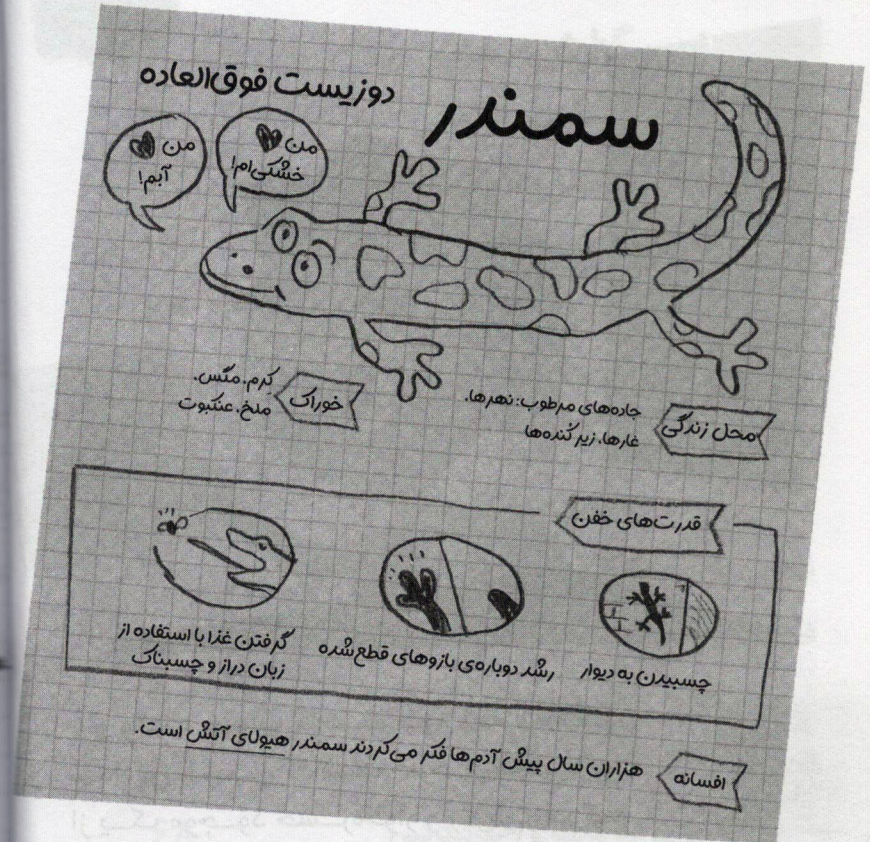 سمندر
دوزیست فوق‌العاده
من ♥
خشکی‌ام!
من ♥
آبم!
محل زندگی
جاده‌های مرطوب: نهرها،
غارها، زیر کُنده‌ها
خوراک
کِرم، مگس،
ملخ، عنکبوت
قدرت‌های خفن
چسبیدن به دیوار
رشد دوباره‌ی بازوهای قطع‌شده
گرفتن غذا با استفاده از
زبان دراز و چسبناک
افسانه
هزاران سال پیش آدم‌ها فکر می‌کردند سمندر هیولای آتش است.